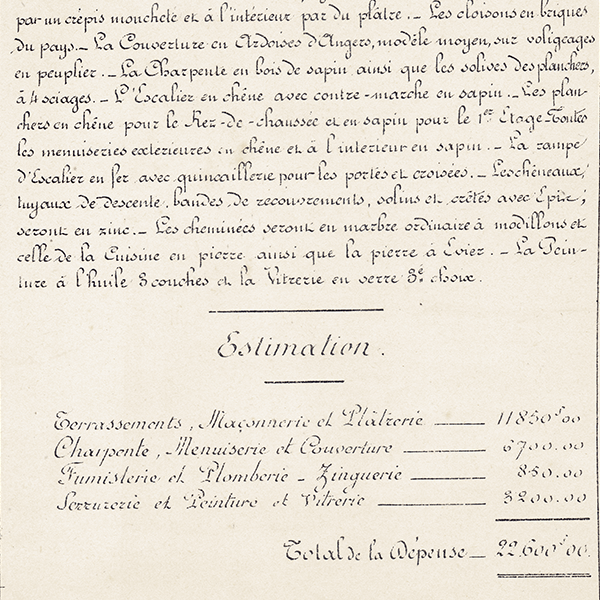 par un crépis moucheté et à l'intérieur par du plâtre. - Les cloisons en briques
du pays. - La Couverture en Ardoises d'Angers, modèle moyen, sur voligeages
en peuplier. - La Charpente en bois de sapin ainsi que les solives des planchers,
à 4 sciages. - L'Escalier en chêne avec contre-marche en sapin. - Les plan-
chers en chêne pour le Rez-de-chaussée et en sapin pour le 1er Etage Toutes
les menuiseries extérieures en chêne et à l'intérieur en sapin. - La rampe
d'Escalier en fer avec quincaillerie pour les portes et croisées. - Les chéneaux,
tuyaux de descente, bandes de recouvrements, solins et crêtes avec Epis;
seront en zinc. - Les cheminées seront en marbre ordinaire à modillons et
celle de la Cuisine en pierre ainsi que la pierre à Evier. - La Pein-
ture à l'huile 3 couches et la Vitrerie en verre 3e choix.
Estimation.
Terrassements, Maçonnerie et Plâtrerie 11850f00
Charpente, Menuiserie et Couverture 6700.00
Fumisterie et Plomberie - Zinguerie 850.00
Serrurerie et Peinture et Vitrerie 3200.00
Total de la Dépense 22.600f00.